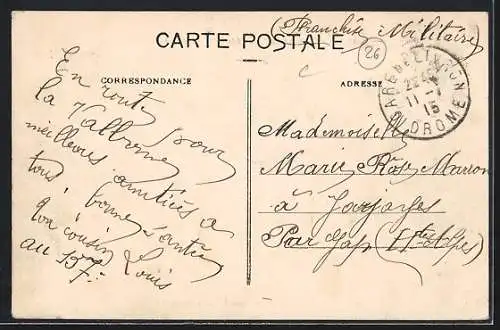 (Franchise Militaire)
CARTE POSTALE
26
CORRESPONDANCE
ADRESSE
GARE DE LIVRON
DROME
22
11 - 7
15
En route pour
la Valbonne
meilleures amitiés à
tous, bonne santé
Ton cousin Louis
au 157e
Mademoiselle
Marie Rose Marion
à Jarjayes
Par Gap (Htes Alpes)